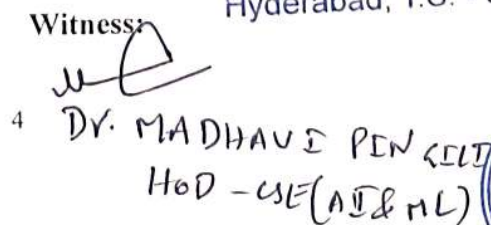 Hyderabad, T.S.
Witness:
4 Dr. MADHAVI
HOD - CSE(AI & ML)